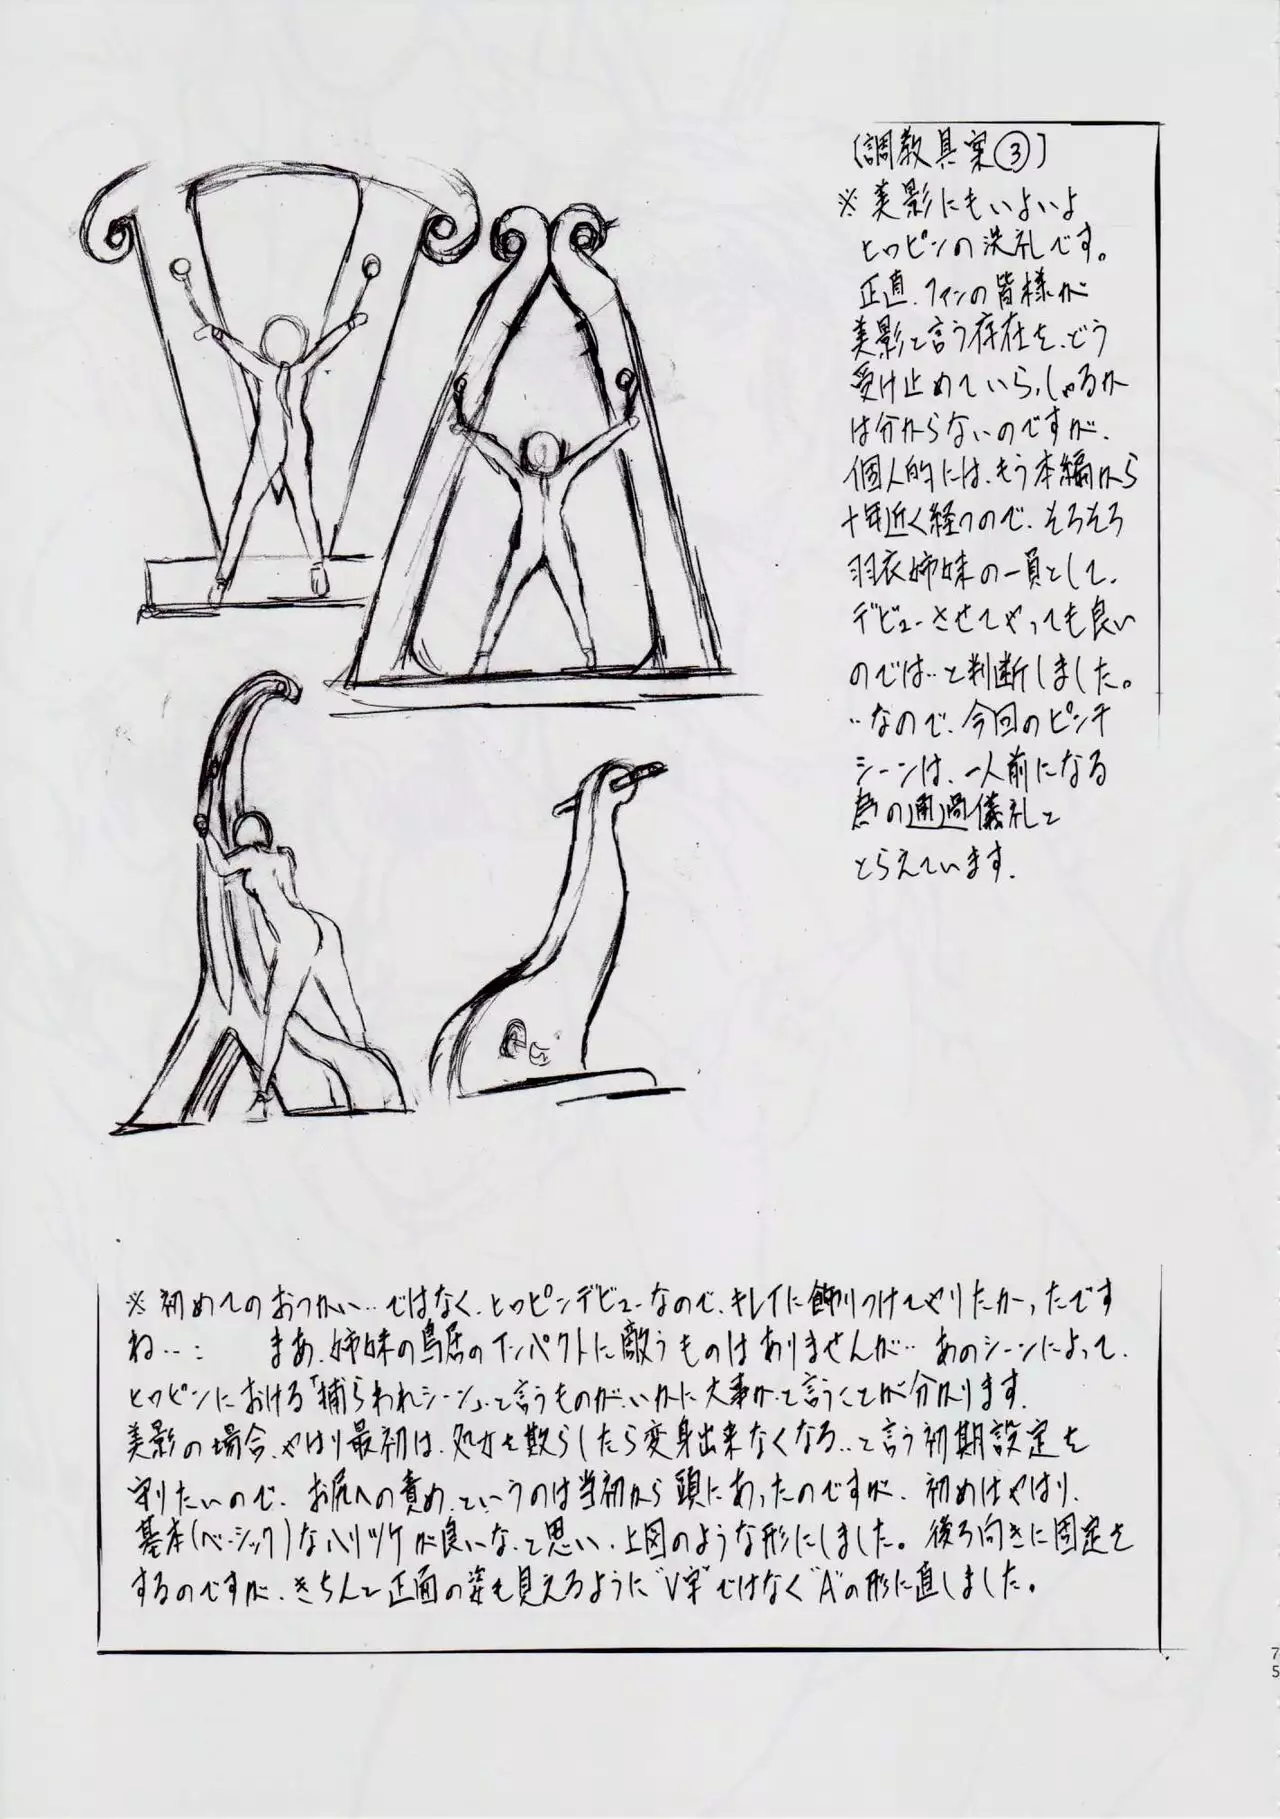 〔調教具案③〕
※美影にもいよいよ
ヒロピンの洗礼です。
正直、ファンの皆様が
美影と言う存在を、どう
受け止めていらっしゃるか
は分からないのですが、
個人的には、もう本編から
十年近く経つので、そろそろ
羽衣姉妹の一員として、
デビューさせてやっても良い
のでは‥と判断しました。
‥なので、今回のピンチ
シーンは、一人前になる
為の通過儀礼と
とらえています。
※初めてのおつかい‥ではなく、ヒロピンデビューなので、キレイに飾りつけてやりたかったです
ね‥‥： まあ、姉妹の鳥居のインパクトに敵うものはありませんが‥あのシーンによって、
ヒロピンにおける「捕らわれシーン」と言うものが、いかに大事かと言うことが分かります。
美影の場合、やはり最初は、処女を散らしたら変身出来なくなる‥と言う初期設定を
守りたいので、お尻への責め、というのは当初から頭にあったのですが、初めはやはり、
基本(ベーシック)なハリツケが良いな、と思い、上図のような形にしました。後ろ向きに固定を
するのですが、きちんと正面の姿も見えるように"V字"ではなく"A"の形に直しました。
75